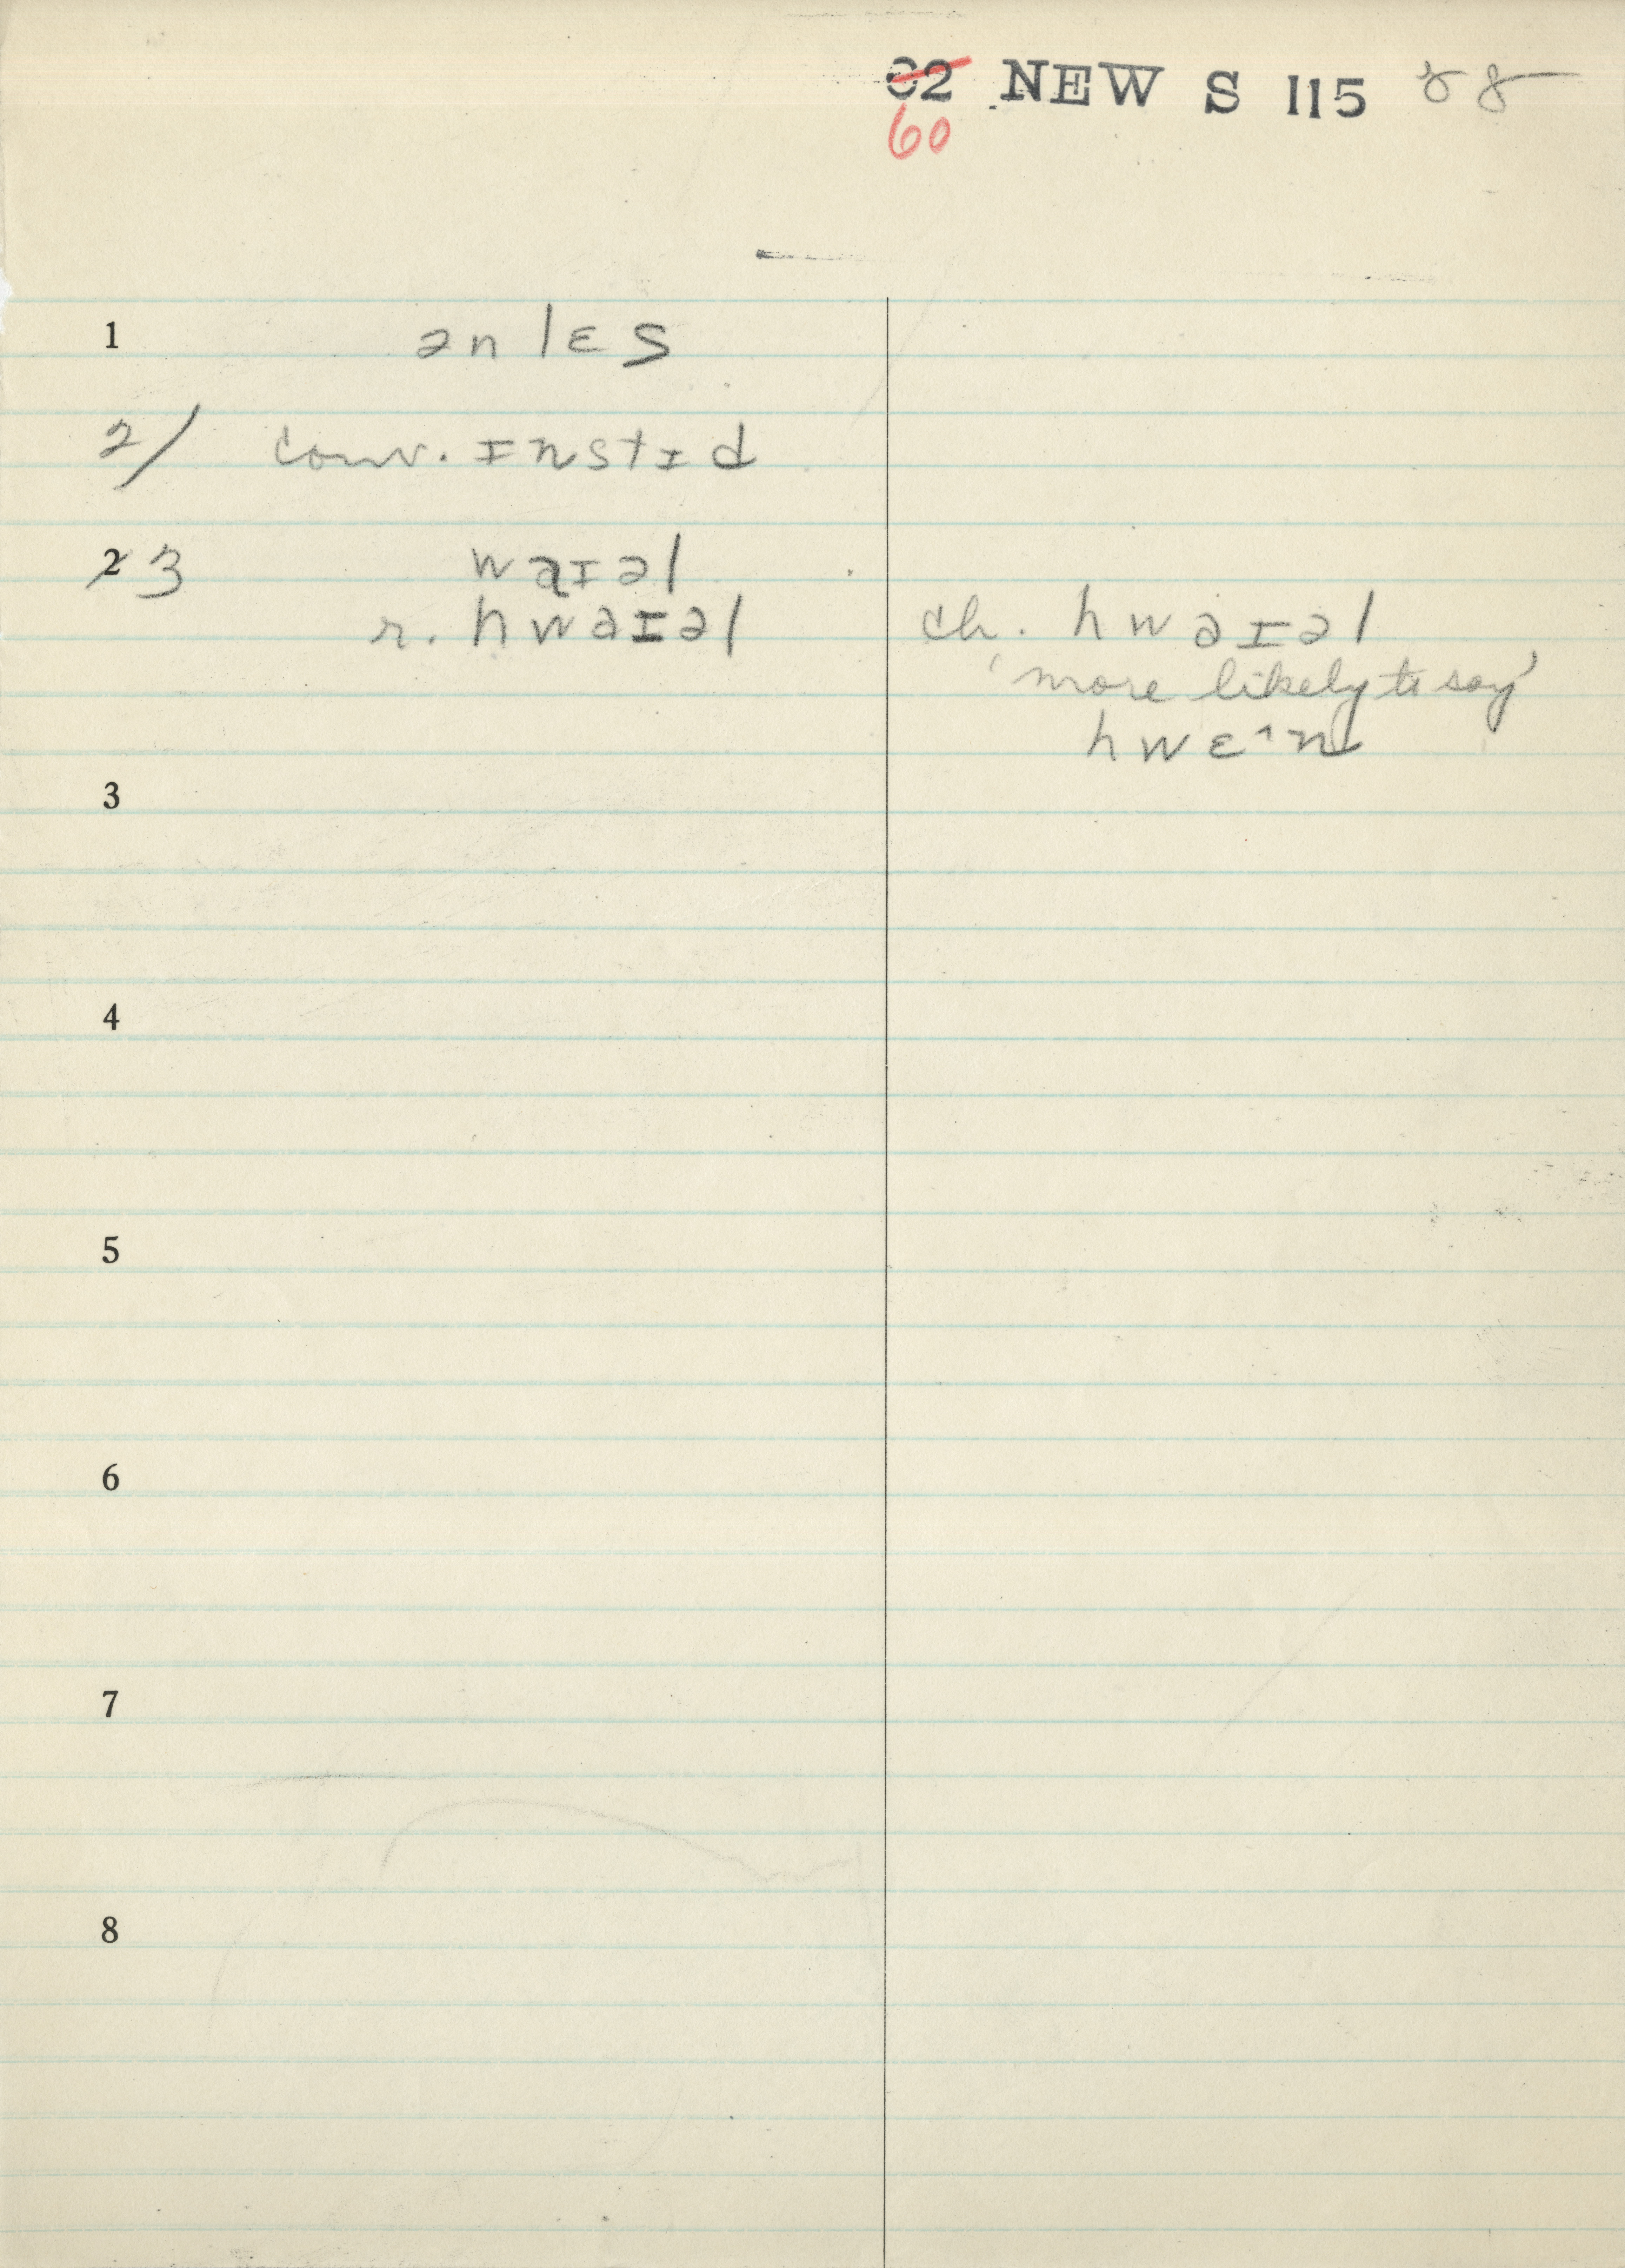 02 NEW S 115 88
60
1 ənlɛs
2/ conv. ɪnstɪd
2 3 waɪəl
r. hwaɪəl ch. hwəɪəl
'more likely to say'
hwɛ^n
3
4
5
6
7
8